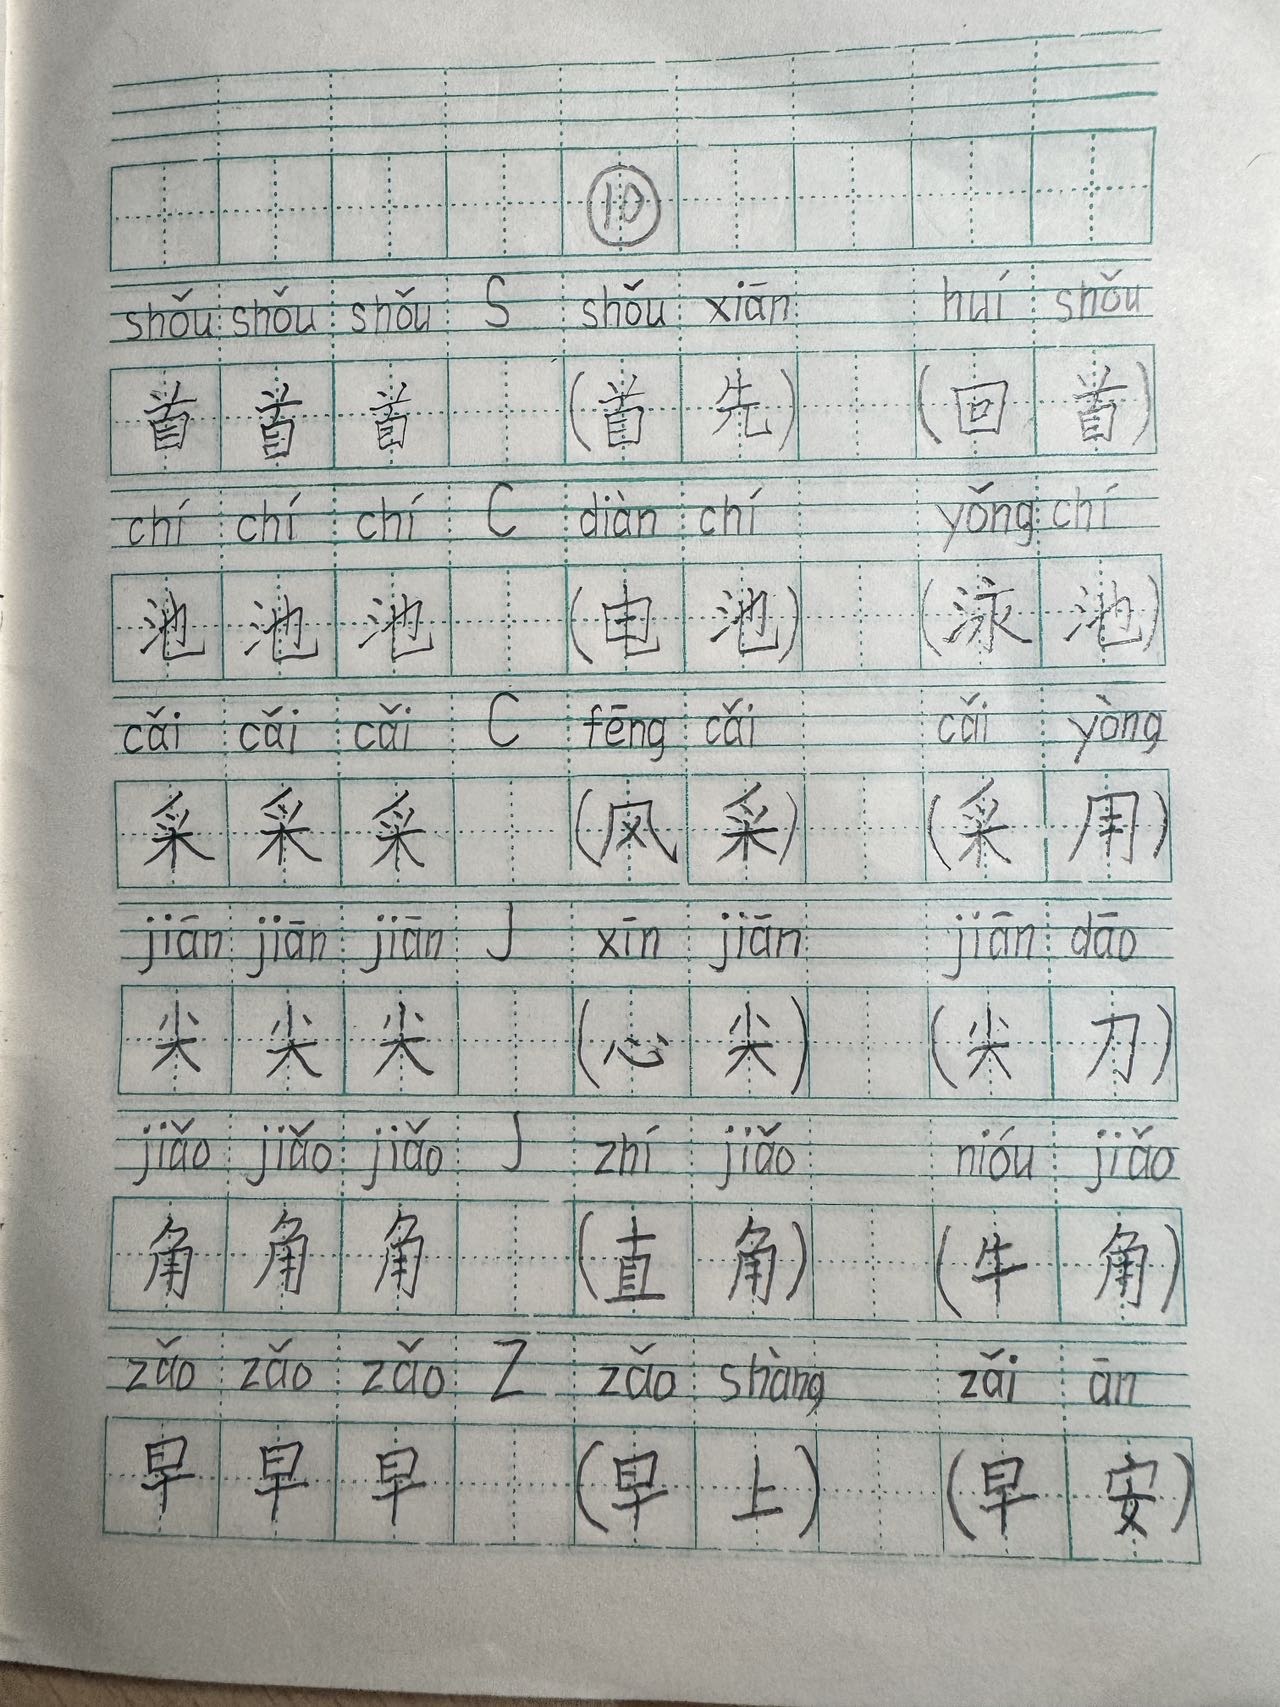 ⑩
shǒu shǒu shǒu S shǒu xiān huí shǒu
首 首 首 (首 先) (回 首)
chí chí chí C diàn chí yǒng chí
池 池 池 (电 池) (泳 池)
cǎi cǎi cǎi C fēng cǎi cǎi yòng
采 采 采 (风 采) (采 用)
jiān jiān jiān J xīn jiān jiān dāo
尖 尖 尖 (心 尖) (尖 刀)
jiǎo jiǎo jiǎo J zhí jiǎo nióu jiǎo
角 角 角 (直 角) (牛 角)
zǎo zǎo zǎo Z zǎo shàng zǎi ān
早 早 早 (早 上) (早 安)